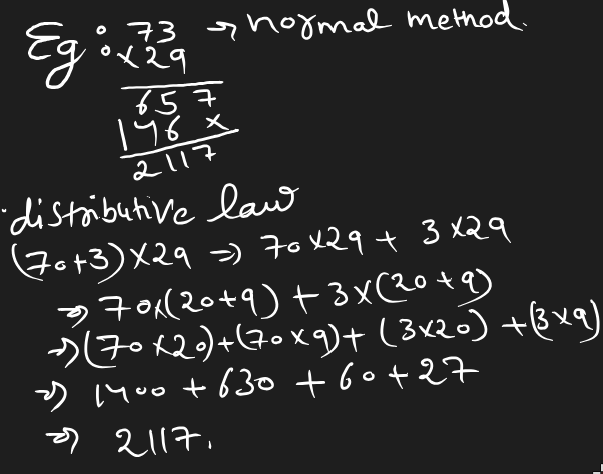 Eg: 73 → normal method.
×29
657
146×
2117
·distributive law
(70+3)×29 ⇒ 70×29 + 3×29
⇒ 70×(20+9) + 3×(20+9)
⇒ (70×20)+(70×9)+(3×20)+(3×9)
⇒ 1400 + 630 + 60 + 27
⇒ 2117.